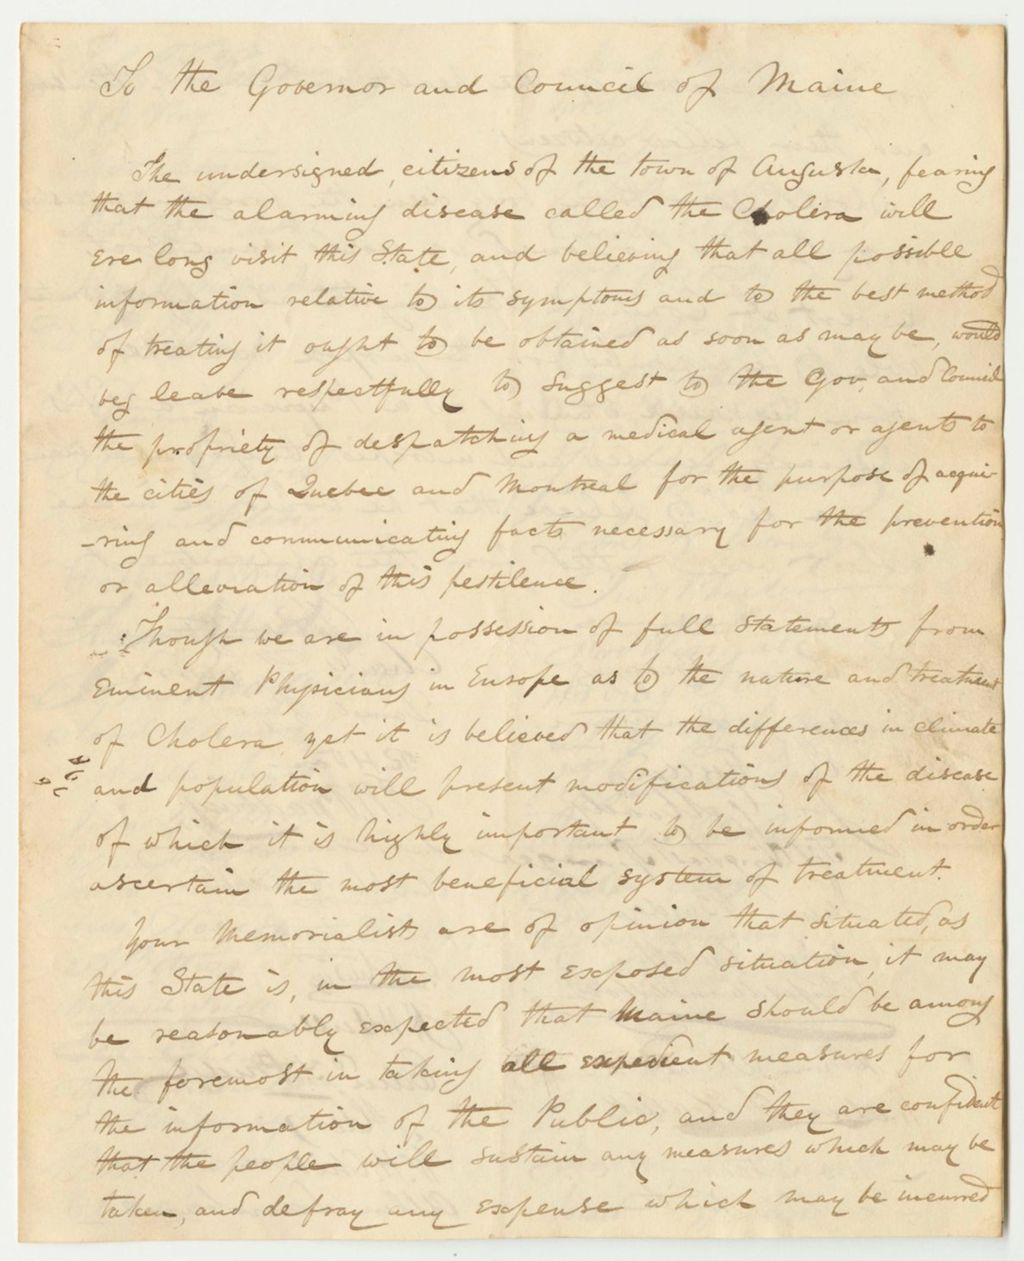 To the Governor and Council of Maine
The undersigned, citizens of the town of Augusta, fearing
that the alarming disease called the Cholera will
ere long visit this State, and believing that all possible
information relative to its symptoms and to the best method
of treating it ought to be obtained as soon as may be, would
beg leave respectfully to suggest to the Gov. and Council
the propriety of despatching a medical agent or agents to
the cities of Quebec and Montreal for the purpose of acqui-
-ring and communicating facts necessary for the prevention
or alleviation of this pestilence.
Though we are in possession of full statements from
Eminent Physicians in Europe as to the nature and treatment
of Cholera, yet it is believed that the differences in climate
and population will present modifications of the disease
of which it is highly important to be informed in order
ascertain the most beneficial system of treatment.
Your Memorialists are of opinion that situated, as
this State is, in the most exposed situation, it may
be reasonably expected that Maine should be among
the foremost in taking all expedient measures for
the information of the Public, and they are confident
that the people will sustain any measures which may be
taken, and defray any expense which may be incurred